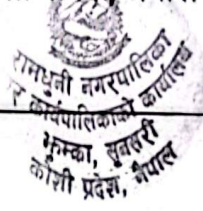 रामधुनी नगरपालिका
र कार्यपालिकाको कार्यालय
झुम्का, सुनसरी
कोशी प्रदेश, नेपाल